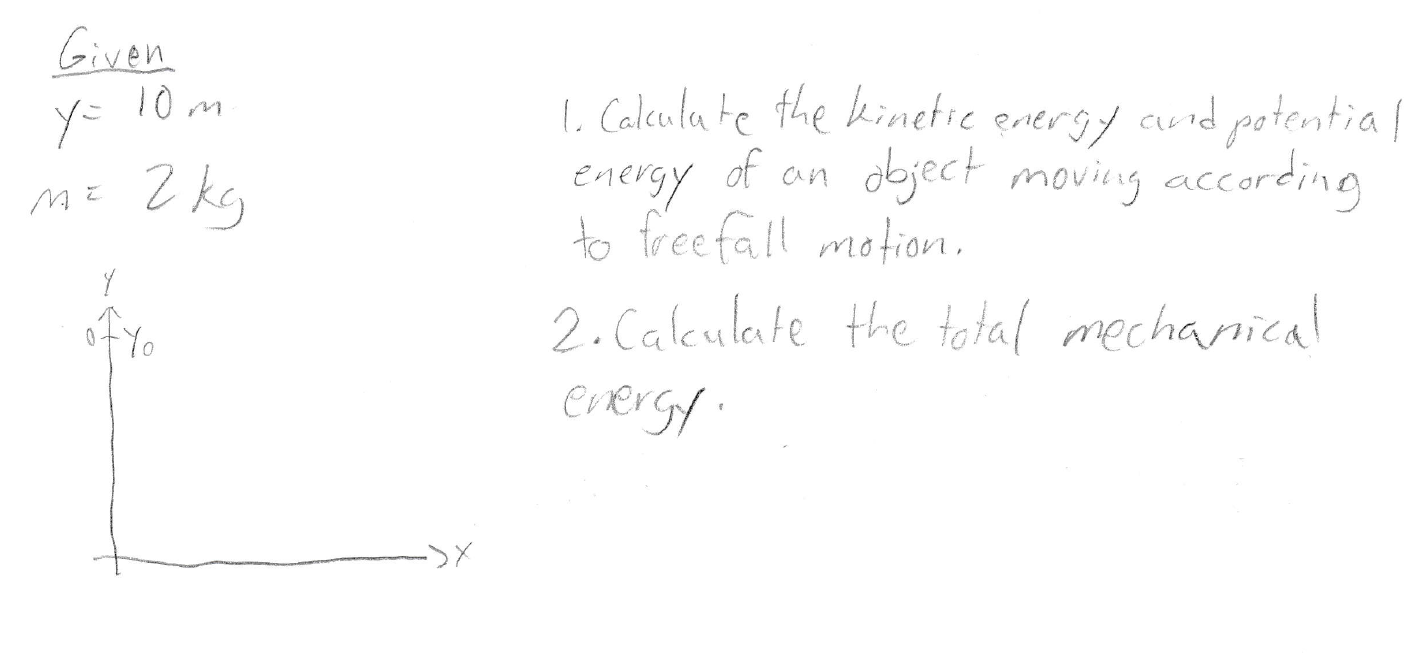 Given
y= 10 m
m= 2 kg
1. Calculate the kinetic energy and potential
energy of an object moving according
to freefall motion.
2. Calculate the total mechanical
energy.
Y
0 Yo
X